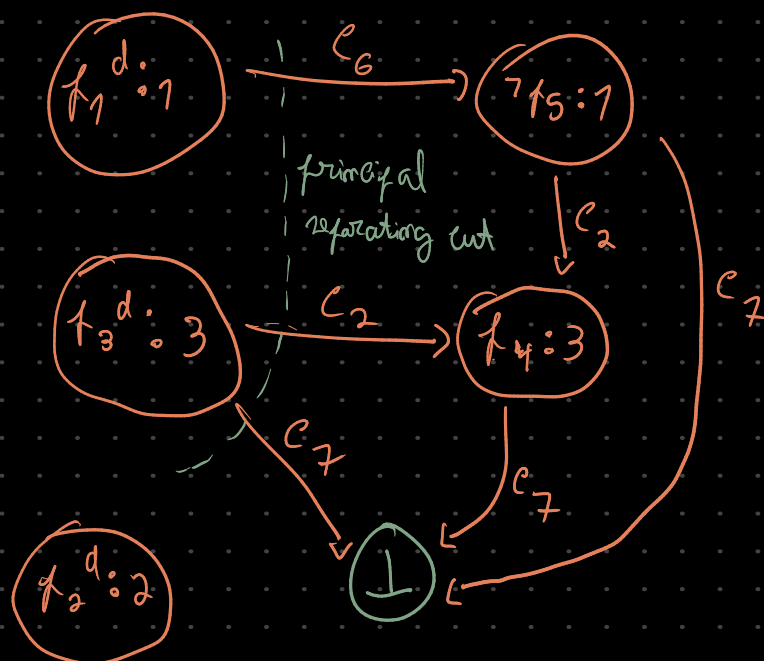 p₁ᵈ : 1
C₆
¬p₅ : 1
principal
separating cut
C₂
C₇
p₃ᵈ : 3
C₂
p₄ : 3
C₇
C₇
p₂ᵈ : 2
⊥